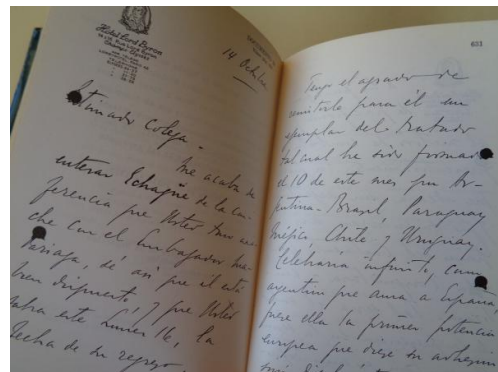 Hotel Lord Byron
Champs Elysées
14 Octubre
Estimado Colega.-
Me acaba de
enterar Echagüe de la con-
ferencia que Usted tuvo
che con el Embajador Ma-
dariaga, dé así que él está
bien dispuesto, y que Usted
este Lunes 16, la
fecha de su regreso
633
Tengo el agrado de
remitirle para él un
ejemplar del Tratado
tal cual ha sido firmado
el 10 de este mes por Ar-
gentina-Brasil, Paraguay
Méjico, Chile y Uruguay.
Celebraría infinito, como
argentino que ama a España,
fuese ella la primera potencia
europea que diese su adhesión